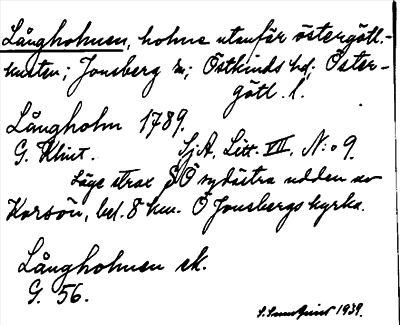 Långholmen, holme utanför östergötl.-
kusten; Jonsberg sn; Östkinds hd; Öster-
götl. l.
Långholm 1789.
G. Klint. SjA. Litt. VIII. N:o 9.
Läge strax SÖ sydöstra udden av
Korsön, bel. 8 km. Ö Jonsbergs kyrka.
Långholmen ek.
G. 56.
S. Sundqvist 1939.